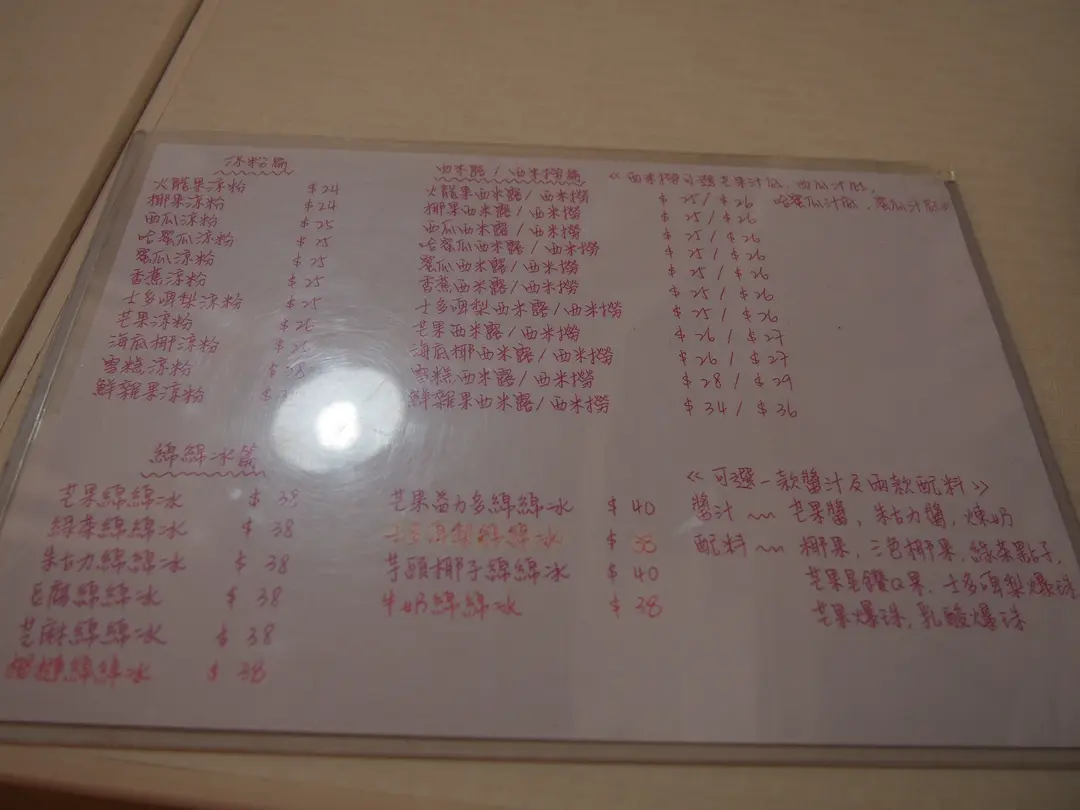 涼粉篇
火龍果涼粉 $24
椰果涼粉 $24
西瓜涼粉 $25
哈蜜瓜涼粉 $25
蜜瓜涼粉 $25
香蕉涼粉 $25
士多啤梨涼粉 $25
芒果涼粉 $26
海底椰涼粉 $25
雪糕涼粉
鮮雜果涼粉
西米露/西米撈篇 《西米撈可選芒果汁底,西瓜汁底,
哈蜜瓜汁底,蜜瓜汁底》
火龍果西米露/西米撈 $25/$26
椰果西米露/西米撈 $25/$26
西瓜西米露/西米撈 $25/$26
哈蜜瓜西米露/西米撈 $25/$26
蜜瓜西米露/西米撈 $25/$26
香蕉西米露/西米撈 $25/$26
士多啤梨西米露/西米撈 $25/$26
芒果西米露/西米撈 $26/$27
海底椰西米露/西米撈 $26/$27
雪糕西米露/西米撈 $28/$29
鮮雜果西米露/西米撈 $34/$36
綿綿冰篇
芒果綿綿冰 $38
綠茶綿綿冰 $38
朱古力綿綿冰 $38
豆腐綿綿冰 $38
芝麻綿綿冰 $38
綿綿冰 $38
芒果益力多綿綿冰 $40
士多啤梨綿綿冰 $38
芋頭椰子綿綿冰 $40
牛奶綿綿冰 $38
《可選一款醬汁及兩款配料》
醬汁~芒果醬,朱古力醬,煉奶
配料~椰果,三色椰果,綠茶點子,
芒果星鑽Q果,士多啤梨爆珠,
芒果爆珠,乳酸爆珠